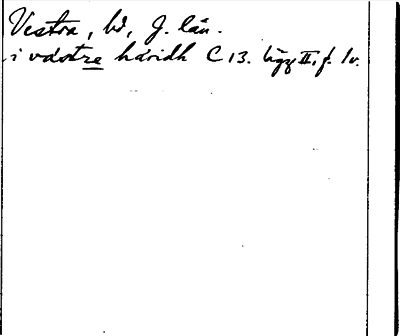 Vestra, hd, J. län.
i västre häridh C 13. lägg II, f. 1v.